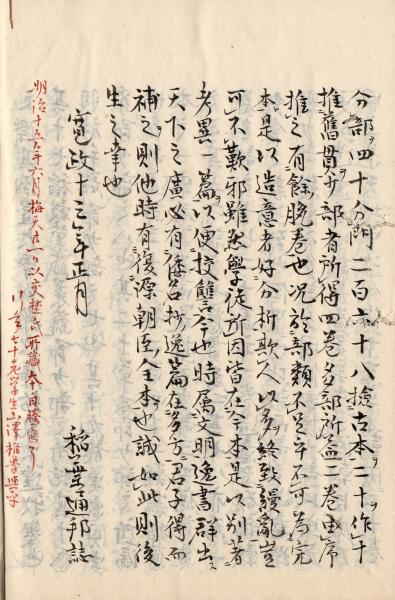 分部ヲ四十分門ヲ二百六十八撿古本ニ二十ヲ作十
推舊貫少部者所得四卷多部所益二卷由席
推之有餘脫卷也況於部類不足乎不可為完
本是以造意者好分析欺人以多終致縵亂豈
可不歎邪雖然學徒所因皆在今本是以別著
考異一篇以便挍讐今也時属文明逸書群出
天下之廣必有倭名抄逸篇在多方君子得而
補之則他時有復源朝臣全本也誠如此則後
生之幸也
寛政十三年正月
稲葉通邦誌
明治十五年六月梅天之一日以文樵氏所蔵本自謄寫了
七十老學生山澤